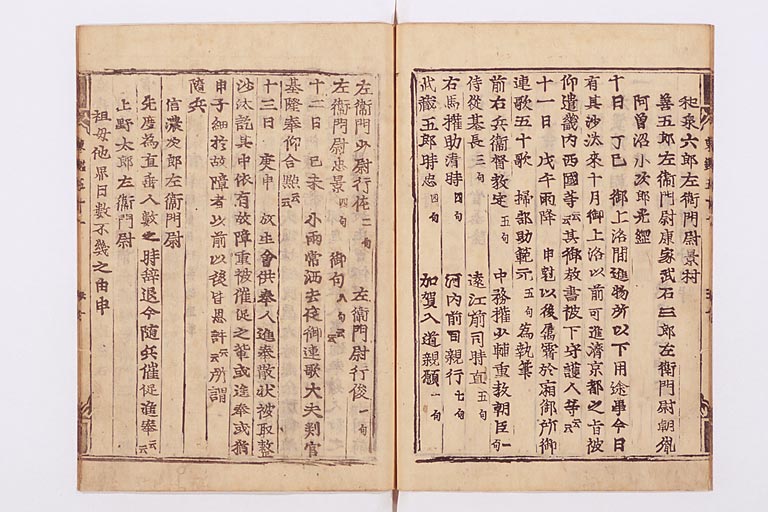 和泉六郎左衛門尉景村
善五郎左衛門尉康家武石三郎左衛門尉朝胤
阿曽沼小次郎光綱
十日 丁巳 御上洛間進物所以下用途事今日
有其沙汰来十月御上洛以前可進済京都之旨被
仰遣畿内西国等云々其御教書被下守護人等云々
十一日 戊午雨降 申尅以後属霽於廂御所御
連歌五十韻 掃部助範元 五句 為執筆
前右兵衛督教定 五句 中務権少輔重教朝臣 一句
侍従基長 三句 遠江前司時直 五句
右馬権助清時 四句 河内前司親行 七句
武蔵五郎時忠 四句 加賀入道親願 一句
左衛門少尉行佐 二句 左衛門尉行俊 一句
左衛門尉忠景 四句 御句 八句云々
十二日 己未 小雨常洒去夜御連歌大夫判官
基隆奉仰合点云々
十三日 庚申 放生会供奉人進奉散状被取整
沙汰訖其中依有故障重被催促之輩或進奉或猶
申子細於故障者以前以後皆恩許云々所謂
随兵
信濃次郎左衛門尉
先度為直垂人数之時辞退今随兵催促進奉云々
上野太郎左衛門尉
祖母他界日数不幾之由申